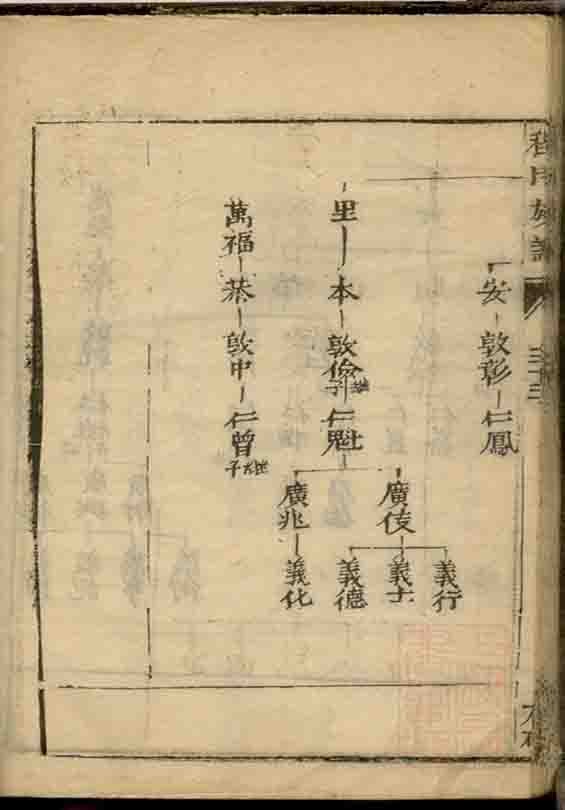 程氏族譜
安 敦彰 仁鳳
里 本 敦儉 繼子 仁魁
廣伎
義行
義士
義德
廣兆 義化
萬福 恭 敦中 仁曾